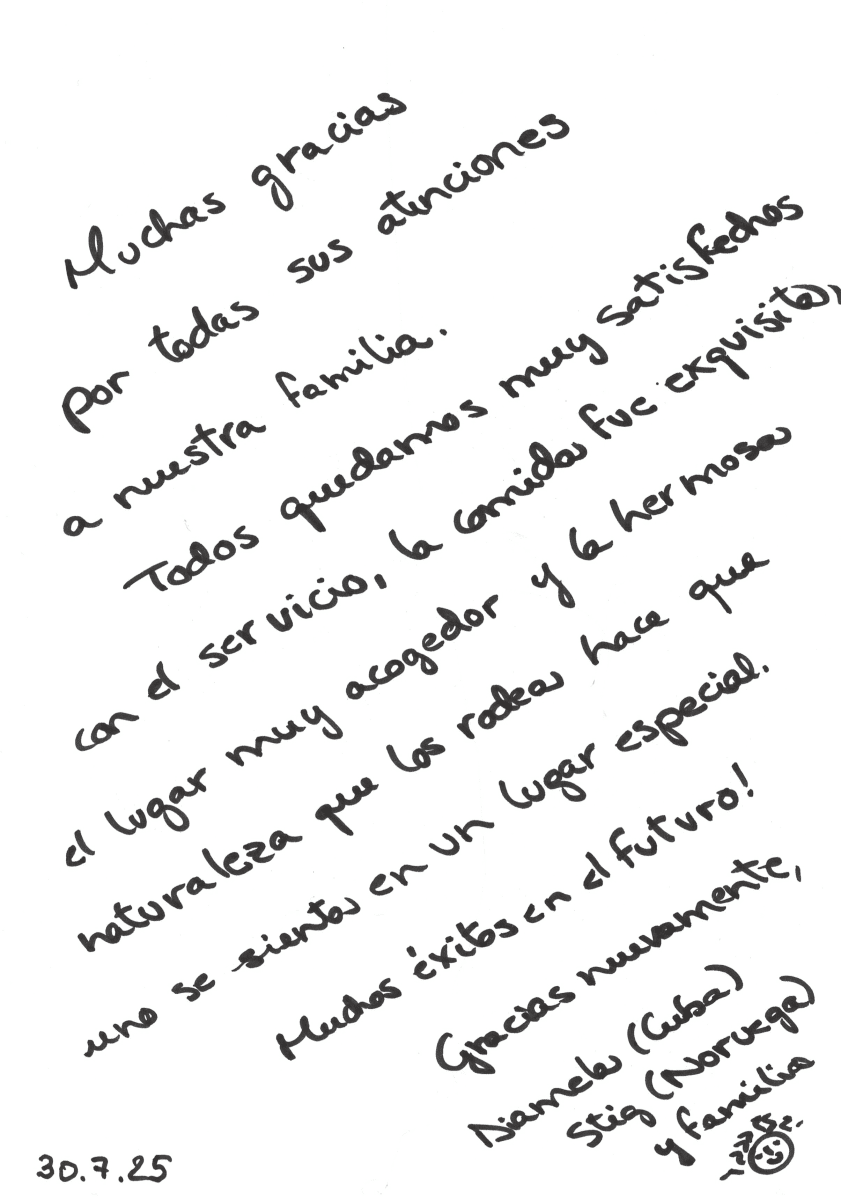 Muchas gracias
por todas sus atenciones
a nuestra familia.
Todos quedamos muy satisfechos
con el servicio, la comida fue exquisita,
el lugar muy acogedor y la hermosa
naturaleza que los rodea hace que
uno se sienta en un lugar especial.
Muchos éxitos en el futuro!
Gracias nuevamente,
Diamela (Cuba)
Stig (Noruega)
y familia
30.7.25